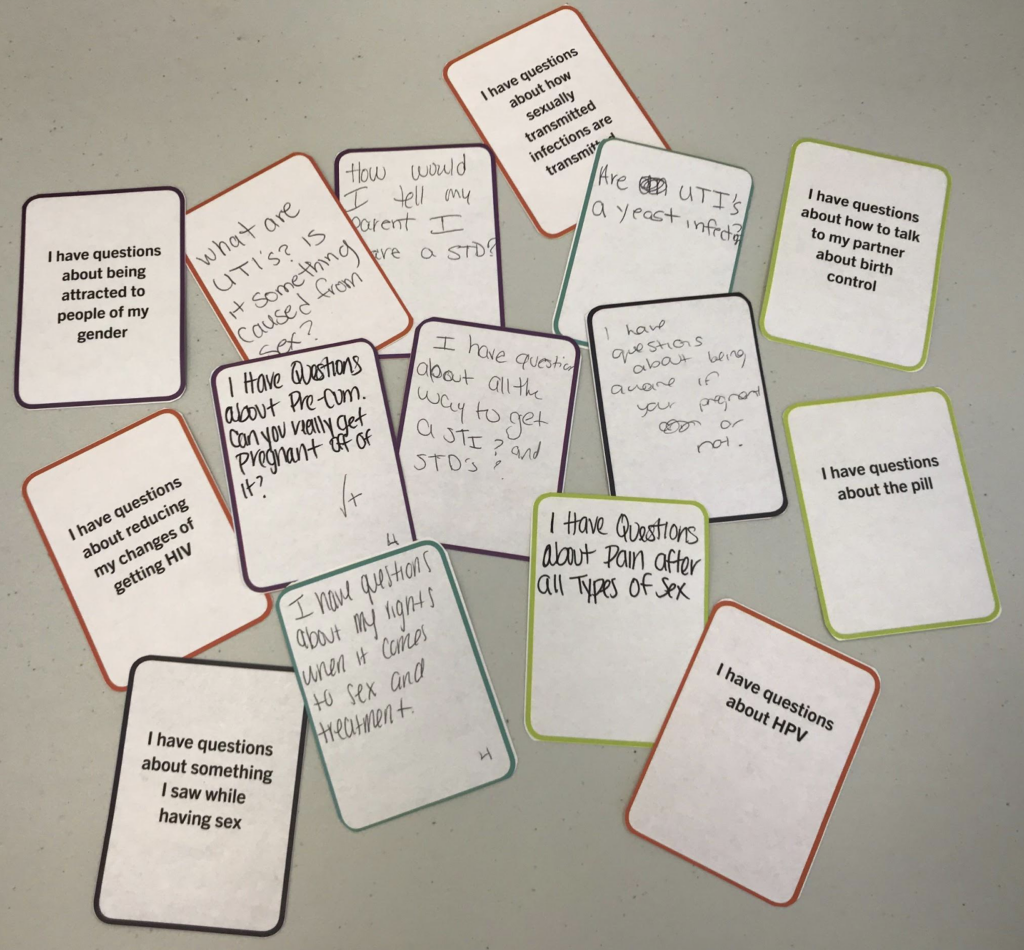 I have questions
about how
sexually
transmitted
infections are
transmitted
I have questions
about being
attracted to
people of my
gender
What are
UTI's? is
it something
caused from
sex?
How would
I tell my
parent I
a STD?
Are UTI's
a yeast infect?
I have questions
about how to talk
to my partner
about birth
control
I Have Questions
about Pre-cum.
Can you really get
Pregnant off of
It?
√+
4
I have question
about all the
way to get
a STI? and
STD's?
I have
questions
about being
aware if
your pregnant
or
not.
I have questions
about the pill
I have questions
about reducing
my changes of
getting HIV
I have questions
about my rights
when it comes
to sex and
treatment.
4
I Have Questions
about Pain after
all Types of Sex
I have questions
about HPV
I have questions
about something
I saw while
having sex